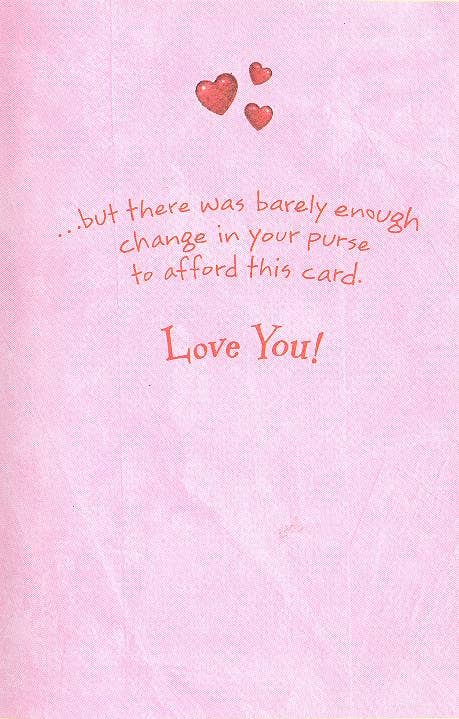 ...but there was barely enough
change in your purse
to afford this card.
Love You!